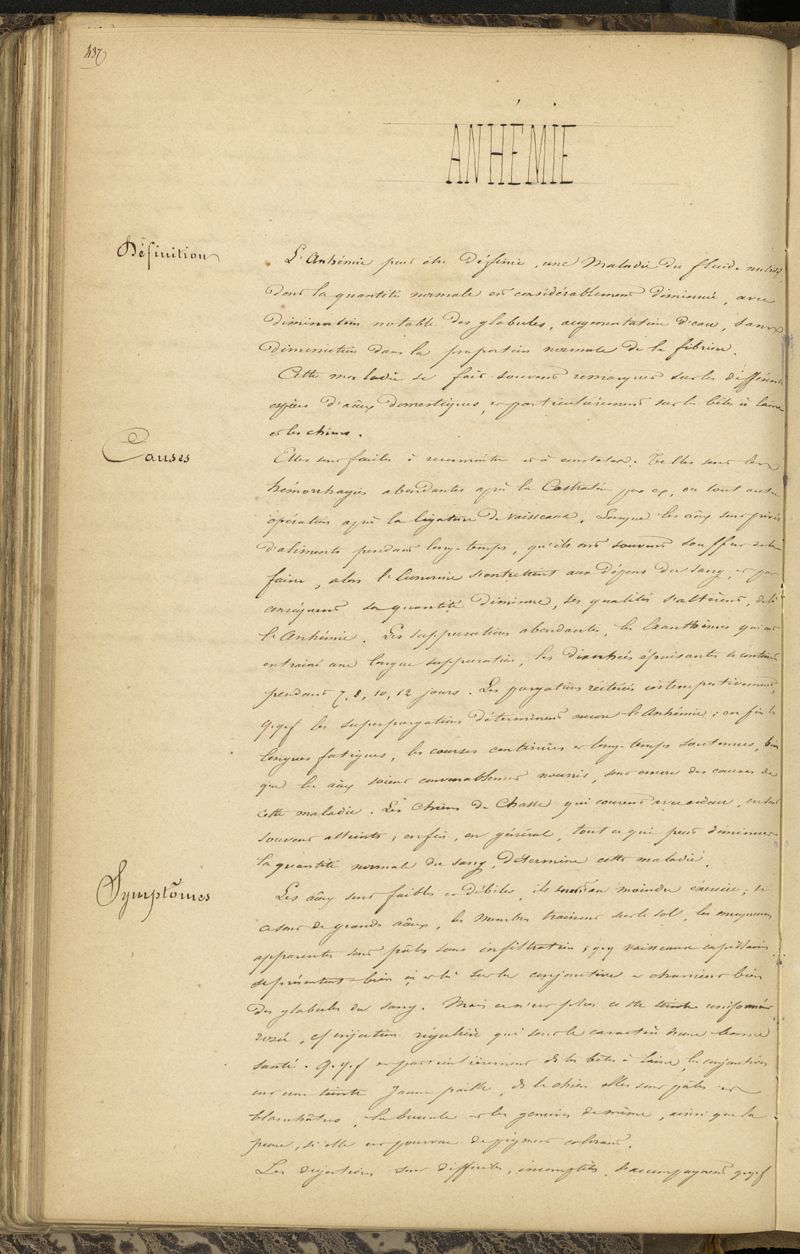 437
ANHÉMIE
Définition
L'Anhémie peut être définie, une Maladie du fluide
dont la quantité normale est considérablement diminuée, avec
diminution notable des globules, augmentation d'eau, sans
diminution dans la proportion normale de la fibrine.
Cette maladie se fait souvent remarquer sur les différentes
espèces d'aûx domestiques, et particulièrement sur les bêtes à laine
et les chiens.
Causes
Elles sont faciles à reconnaître et à constater. Telles sont les
hémorrhagies abondantes après la Castration par ex, ou tout autre
opération après la ligature de vaisseaux. Lorsque les aûx sont privés
d'aliments pendant long-temps, qu'ils ont souvent souffert de la
faim, alors l'économie s'entretient aux dépens du sang, et par
conséquent sa quantité diminue, ses qualités s'altèrent, de là
l'Anhémie. Les suppurations abondantes, les Exanthèmes qui ont
entraîné une longue suppuration, les diarrhées épuisantes
pendant 7, 8, 10, 12 jours. Les purgations réitérées intempestivement,
q.q.f les superpurgations déterminent encore l'Anhémie; enfin les
longues fatigues, les courses continues et long-temps soutenues, bien
que les aûx soient convenablement nourris, sont encore des causes de
cette maladie. Les Chiens de Chasse qui courent avec ardeur, en sont
souvent atteints; enfin, en général, tout ce qui peut diminuer
la quantité normale du sang, détermine cette maladie.
Symptômes
Les aûx sont faibles et débiles, ils suent au moindre exercice; si
ce sont de grands aûx, les Membres traînent sur le sol, les muqueuses
apparentes sont pâles sans infiltration; q.q.x vaisseaux capillaires
se présentent bien çà et là sur la conjonctive et charrient bien
des globules du sang. Mais ce n'est plus cette teinte uniformément
rosée, cet injection régulière qui sont le caractère d'une bonne
santé. q.q.f et particulièrement de les bêtes à laine, la conjonctive
est une teinte Jaune paille, de le chien elles sont pâles et
blanchâtres, la buccale et les gencives de même, ainsi que la
peau, si elle est pourvue de pigment colorant.
Les déjections sont difficiles, incomplètes, s'accompagnent q.q.f